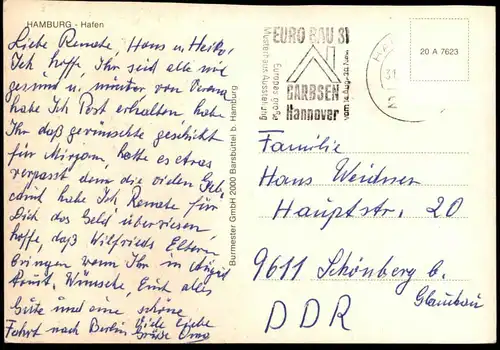 HAMBURG - Hafen
Liebe Renate, Hans u. Heiko,
Ich hoffe, Ihr seid alle wie
gesund u. munter von Verena
habe Ich Post erhalten, habe
Ihr daß gewünschte geschikt
für Mirjam, hatte es etwas
verpasst denn die vielen Geb.
habe Ich Renate für
Dich das Geld überwiesen
hoffe, daß Wilfrieds Eltern
bringen wenn Ihr in
Wünsche, Euch alles
Gute und eine schöne
Fahrt nach Berlin Viele liebe
Grüße Oma
Burmester GmbH 2000 Barsbüttel b. Hamburg
EURO BAU 81
Musterhaus Ausstellung
Europas große
GARBSEN
Hannover
20 A 7623
Familie
Hans Weidner
Hauptstr. 20
9611 Schönberg b.
Glauchau
DDR